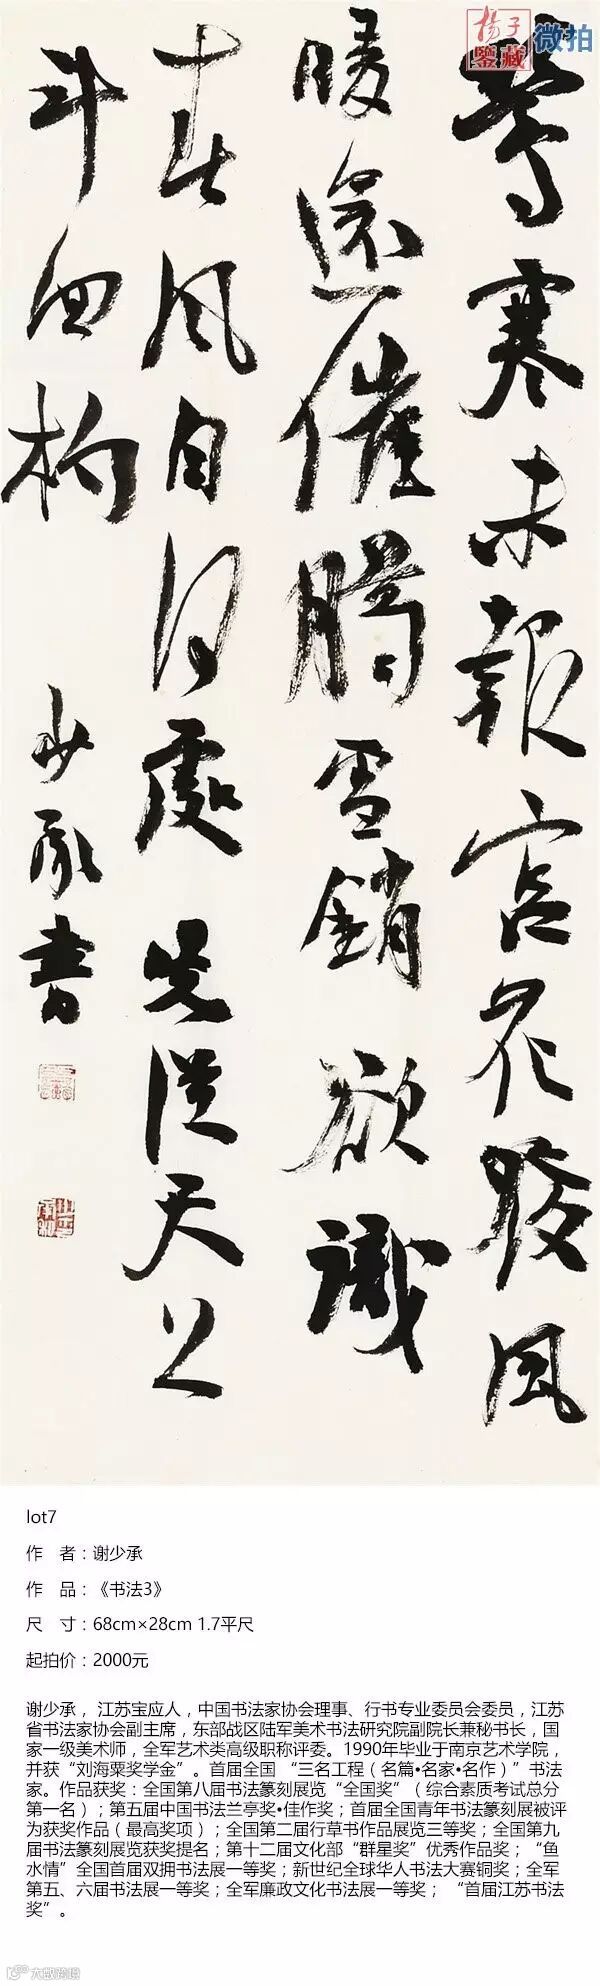 楊子鑒藏 微拍
鶯寒未報宮花發風
暖還催臘雪銷欲識
春風自何處先從天上
斗回杓
少承書
lot7
作 者：谢少承
作 品：《书法3》
尺 寸：68cm×28cm 1.7平尺
起拍价：2000元
谢少承， 江苏宝应人，中国书法家协会理事、行书专业委员会委员，江苏
省书法家协会副主席，东部战区陆军美术书法研究院副院长兼秘书长，国
家一级美术师，全军艺术类高级职称评委。1990年毕业于南京艺术学院，
并获“刘海粟奖学金”。首届全国 “三名工程（名篇•名家•名作）”书法
家。作品获奖：全国第八届书法篆刻展览“全国奖”（ 综合素质考试总分
第一名）；第五届中国书法兰亭奖•佳作奖；首届全国青年书法篆刻展被评
为获奖作品（最高奖项）；全国第二届行草书作品展览三等奖；全国第九
届书法篆刻展览获奖提名；第十二届文化部“群星奖”优秀作品奖； “鱼
水情”全国首届双拥书法展一等奖；新世纪全球华人书法大赛铜奖；全军
第五、六届书法展一等奖；全军廉政文化书法展一等奖； “首届江苏书法
奖”。
大数跨境